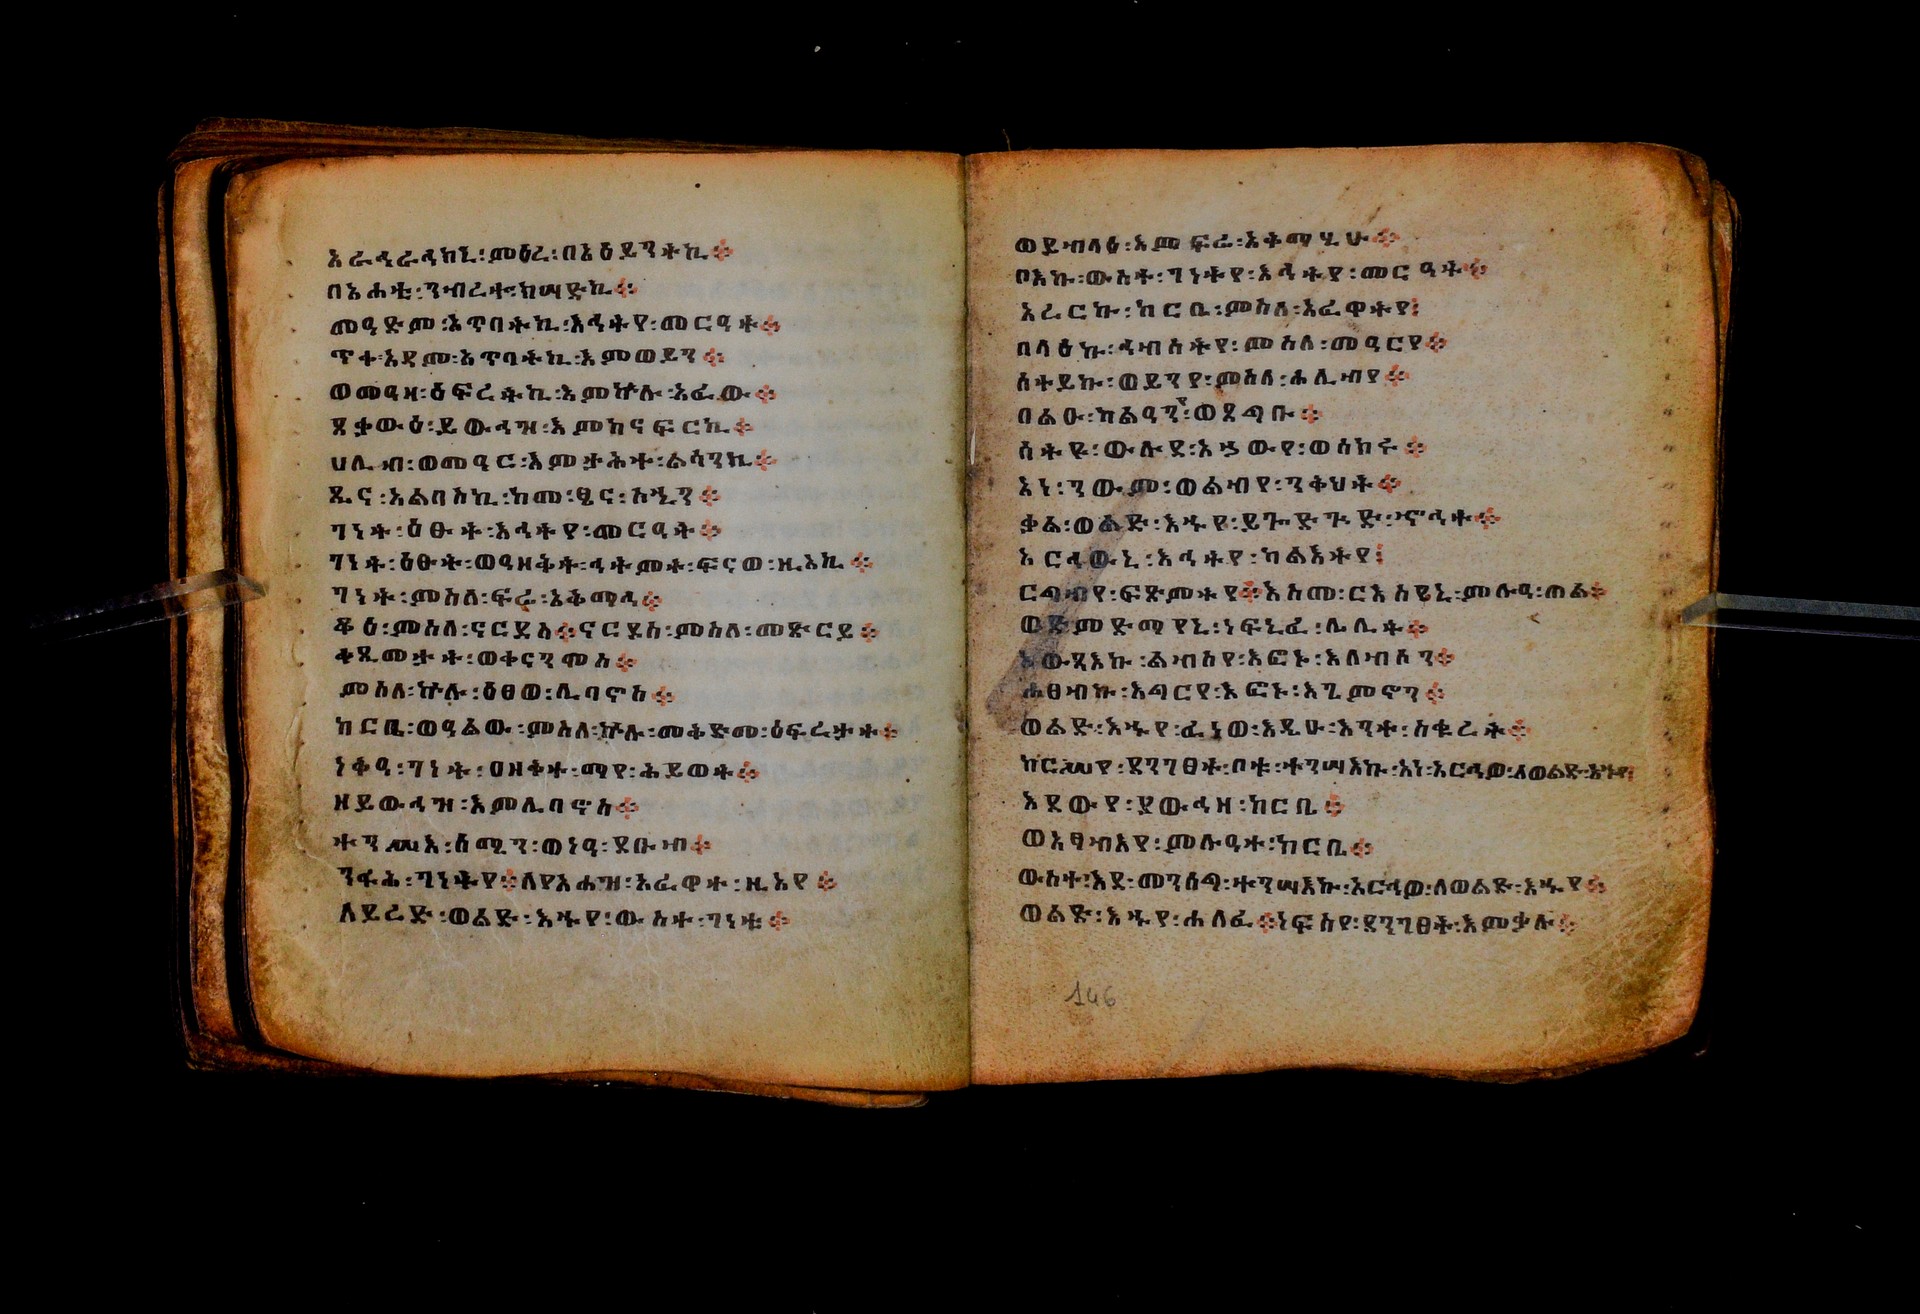 አራዲራዲከኒ፡መዕረ፡በአዕይንትኪ።
በአሐቲ፡ንብረተ፡ክሣድኪ።
መዓድም፡አጥባትኪ፡እኅትየ፡መርዓት።
ጥቀ፡አዳም፡አጥባትኪ፡እምወይን።
ወመዓዛ፡ዕፍረትኪ፡እምኵሉ፡አፈው።
ጸቃውዕ፡ይውኅዝ፡እምከናፍርኪ።
ሀሊብ፡ወመዓር፡እምታሕተ፡ልሳንኪ።
ጼና፡አልባስኪ፡ከመ፡ፄና፡ስኂን።
ገነት፡ዕፁት፡እኅትየ፡መርዓት።
ገነት፡ዕፁት፡ወዓዘቅት፡ኅትምት፡ፍናወ፡ዚአኪ።
ገነት፡ምስለ፡ፍሬ፡አቅማሒ።
ቆዕ፡ምስለ፡ናርዶስ።ናርዶስ፡ምስለ፡መጽርይ።
ቀጺመታት፡ወቀናንሞስ።
ምስለ፡ኵሉ፡ዕፀወ፡ሊባኖስ።
ከርቤ፡ወዓልው፡ምስለ፡ኵሉ፡መቅድመ፡ዕፍረታት።
ነቅዓ፡ገነት፡ዐዘቅተ፡ማየ፡ሕይወት።
ዘይውኅዝ፡እምሊባኖስ።
ተንሥእ፡ሰሜን፡ወነዓ፡ደቡብ።
ንፋሕ፡ገነትየ።ለየአሐዝ፡አፈዋተ፡ዚአየ።
ለይረድ፡ወልድ፡እኁየ፡ውስተ፡ገነቱ።
ወይብላዕ፡እም፡ፍሬ፡አቅማሂሁ።
ቦእኩ፡ውስተ፡ገነትየ፡እኅትየ፡መርዓት።
አረርኩ፡ከርቤ፡ምስለ፡አፈዋትየ፡
በላዕኩ፡ኅብስትየ፡ምስለ፡መዓርየ።
ሰተይኩ፡ወይንየ፡ምስለ፡ሐሊብየ።
በልዑ፡ካልዓን፡ወጸግቡ።
ስትዩ፡ውሉደ፡አኃውየ፡ወስከሩ።
አነ፡ንውም፡ወልብየ፡ንቅህት።
ቃል፡ወልድ፡እኁየ፡ይጐድጕድ፡ኆኅተ።
አርኅውኒ፡እኅትየ፡ካልእትየ፡
ርግብየ፡ፍጽምትየ።እስመ፡ርእስየኒ፡ምሉዓ፡ጠል።
ወድምድማየኒ፡ነፍኒፈ፡ሌሊት።
አውጻእኩ፡ልብስየ፡እፎኑ፡እለብስን።
ሐፀብኩ፡እግርየ፡እፎኑ፡አጌምኖን።
ወልድ፡እኁየ፡ፈነወ፡እዴሁ፡እንተ፡ስቁረት።
ከርሥየ፡ደንገፀት፡ቦቱ፡ተንሣእኩ፡አነ፡አርኅው፡ለወልድ፡እኁየ፡
እደውየ፡የውኅዛ፡ከርቤ።
ወአፃብእየ፡ምሉዓተ፡ከርቤ።
ውስተ፡እደ፡መንሰግ፡ተንሣእኩ፡አርኅው፡ለወልድ፡እኁየ።
ወልድ፡እኁየ፡ሐለፈ።ነፍስየ፡ደንገፀት፡እምቃሉ።
146